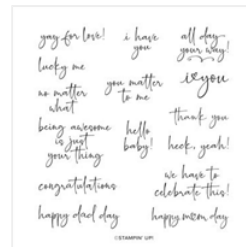 yay for love!
i have
you
all day
your way!
lucky me
i you
no matter
what
you matter
to me
thank you
being awesome
is just
your thing
hello
baby!
heck, yeah!
congratulations
we have to
celebrate this!
happy dad day
happy mom day
©STAMPIN' UP!